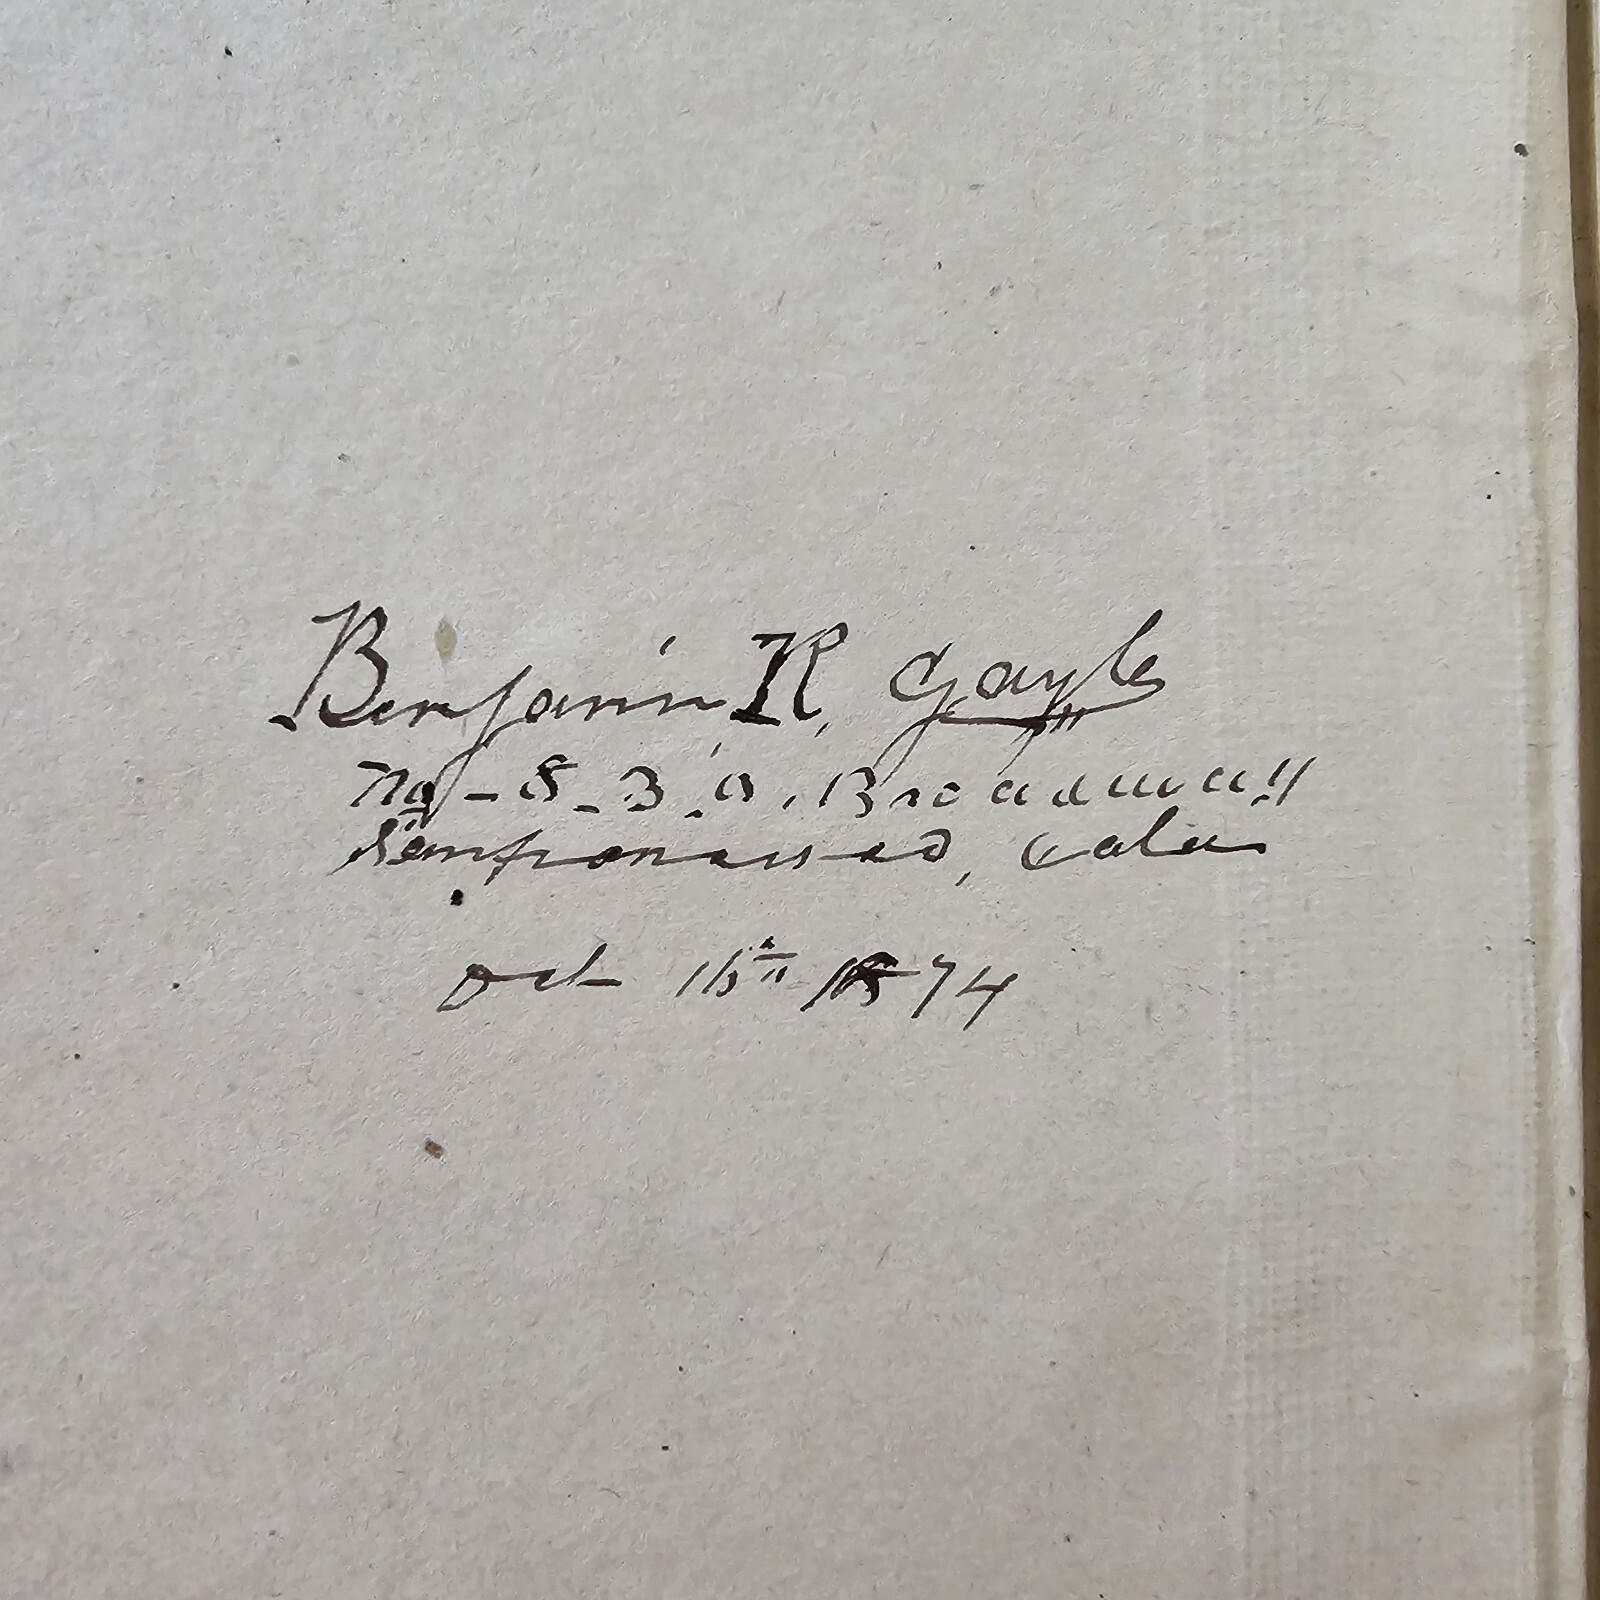 Benjamin R, Gayle
No - 8 - 3. 0. Broadway
Sanfrancisco, Cala
Oct 16th 1874